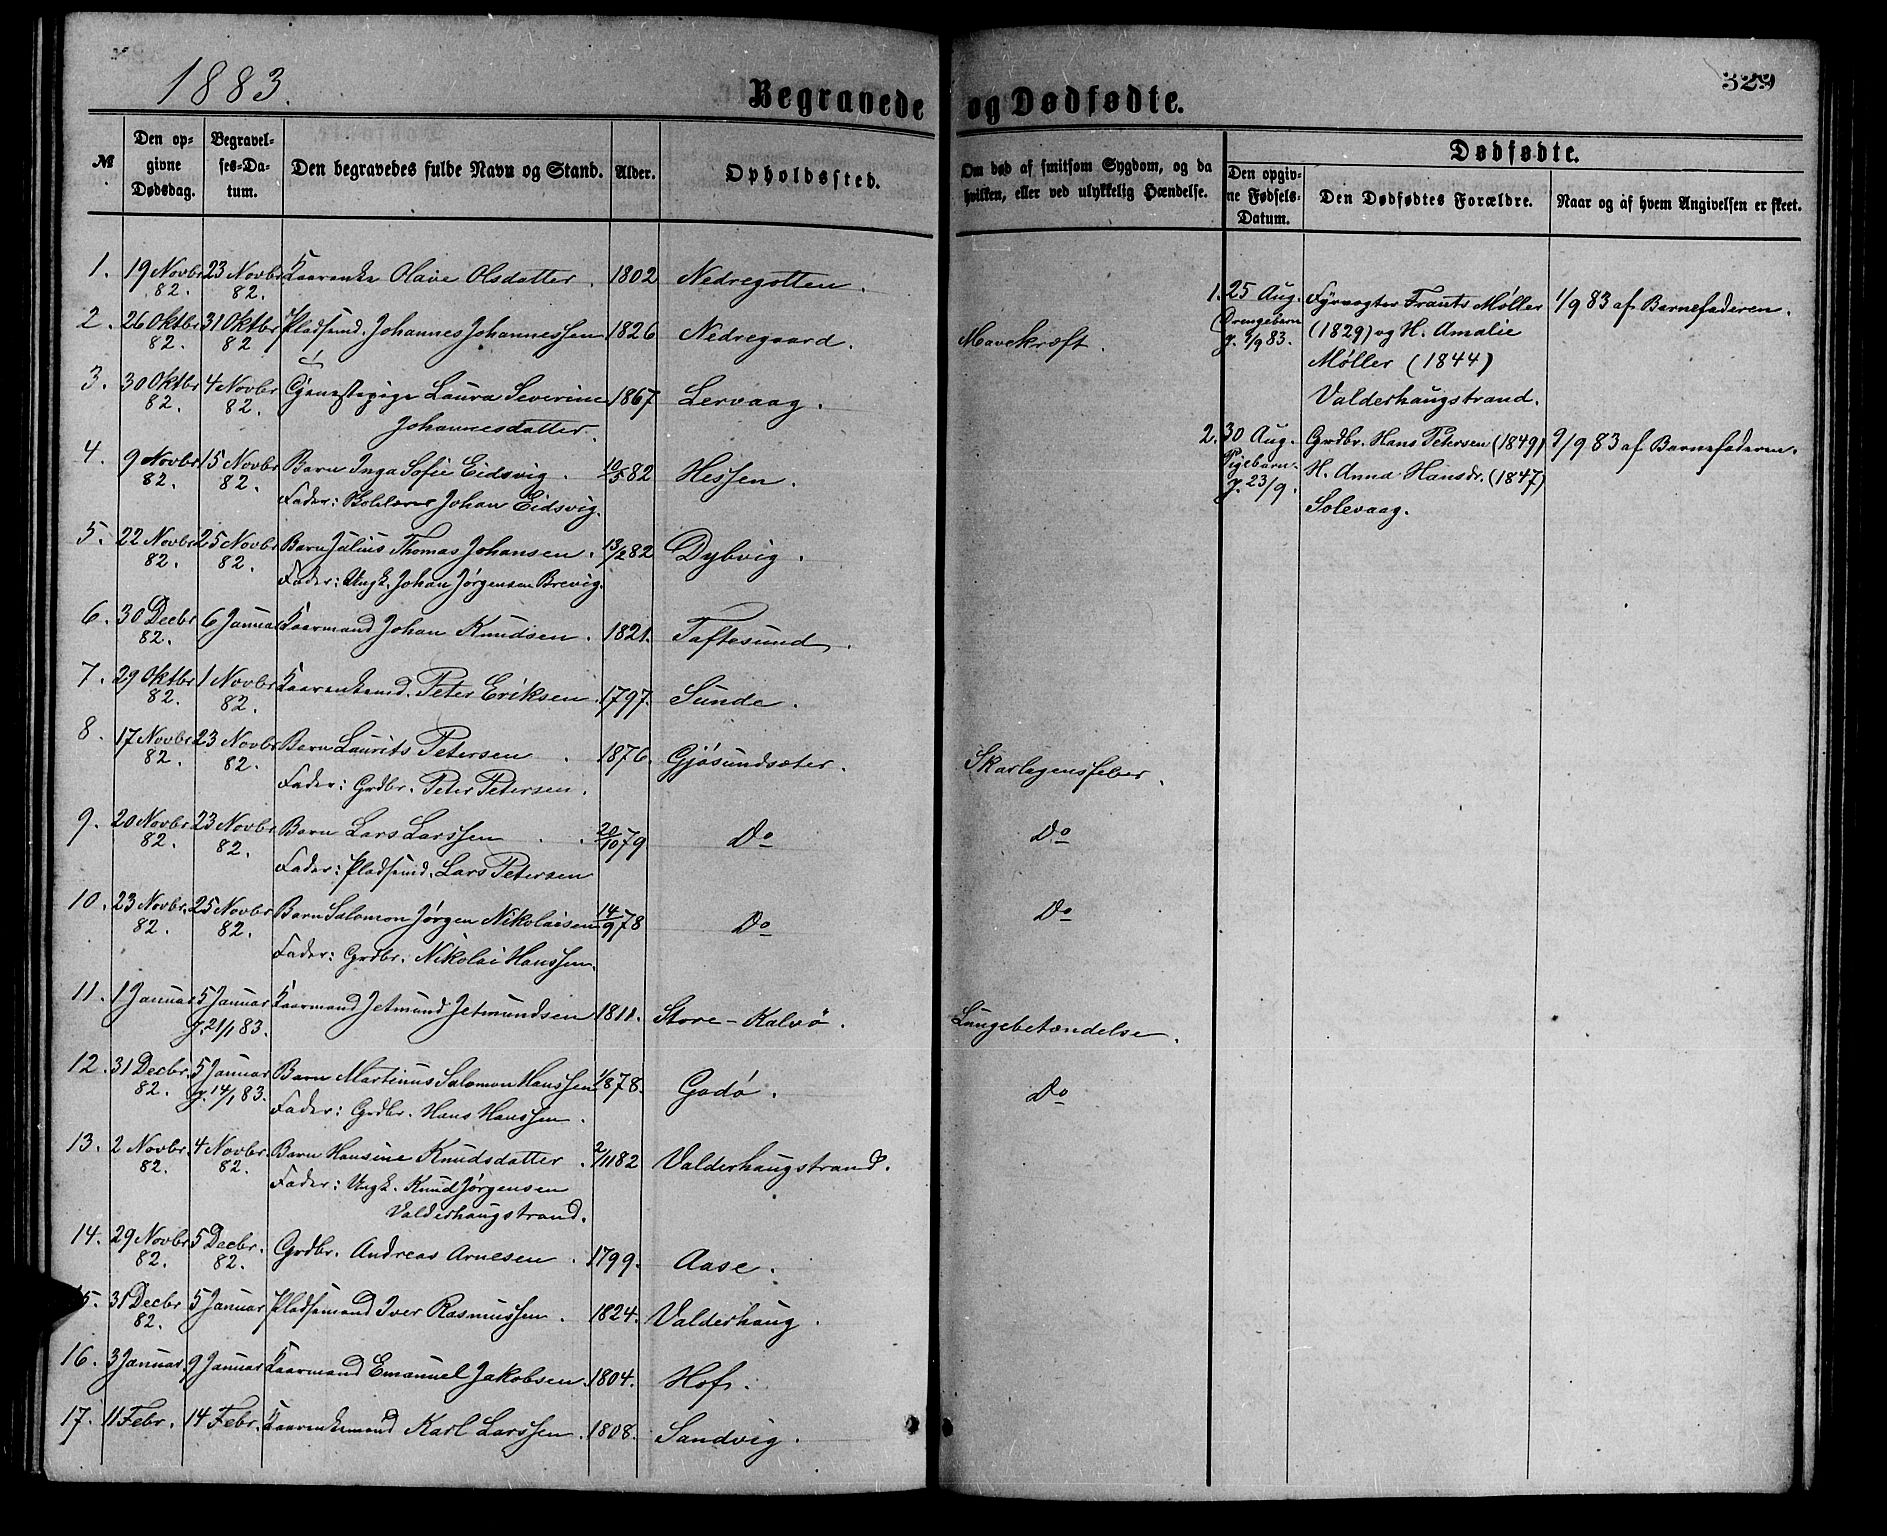 1883.
Begravede og Dødfødte.
329
№
Den opgivne Dødsdag.
Begravelses-Datum.
Den begravedes fulde Navn og Stand.
Alder.
Opholdssted.
Om død af smitsom Sygdom, og da hvilken, eller ved ulykkelig Hændelse.
Dødfødte.
Den opgivne Fødsels-Datum.
Den Dødfødtes Forældre.
Naar og af hvem Angivelsen er skeet.
1. 19 Novbr 82. 23 Novbr 82. Kaarenke Olave Olsdatter. 1802 Nedregotten.
2. 26 Oktbr 82. 31 Oktbr 82 Pladsmd. Johannes Johannessen 1826 Nedregaard. Mavekræft.
3. 30 Oktbr 82. 4 Novbr 82. Tjenestepige Laura Severine 1867 Lervaag.
Johannesdatter.
4. 9 Novbr 82. 15 Novbr 82. Barn Inga Sofie Eidsvig. 10/5 82 Hessen.
Fader: Johan Eidsvig.
5. 22 Novbr 82. 25 Novbr 82. Barn Julius Thomas Johansen. 13/2 82 Dybvig.
Fader: Ungk. Johan Jørgensen Brevig.
6. 30 Decbr 82. 6 Januar Kaarmand Johan Knudsen. 1821. Taftesund.
7. 29 Oktbr 82. 1 Novbr 82. Kaarenkemd. Peter Eriksen. 1797. Sunde.
8. 17 Novbr 82. 23 Novbr 82. Barn Laurits Petersen. 1876. Gjøsundsæter. Skarlagensfeber.
Fader: Grdbr. Peter Petersen.
9. 20 Novbr 82. 23 Novbr 82. Barn Lars Larssen. 20/10 79 Do Do
Fader: Pladsmd. Lars Petersen
10. 23 Novbr. 82. 25 Novbr 82. Barn Salomon Jørgen Nikolaisen 14/9 78 Do Do
Fader: Grdbr. Nikolai Hanssen.
11. 1 Januar 5 Januar g. 21/1 83. Kaarmand Jetmund Jetmundsen 1811. Store-Kalvö. Lungebetændelse.
12. 31 Decbr. 82. 5 Januar g. 14/1 83. Barn Martinus Salomon Hanssen 1/8 78. Godø. Do
Fader: Grdbr. Hans Hanssen.
13. 2 Novbr. 82. 4 Novbr. 82. Barn Hansine Knudsdatter. 2/11 82 Valderhaugstrand.
Fader: Ungk. Knud Jørgensen
Valderhaugstrand.
14. 29 Novbr 82. 5 Decbr. 82. Grdbr. Andreas Arnesen. 1799. Aase.
15. 31 Decbr 82. 5 Januar Pladsmand Iver Rasmussen. 1824. Valderhaug.
16. 3 Januar. 9 Januar Kaarmand Emanuel Jakobsen. 1804. Hof.
17. 11 Febr. 14 Febr. Kaarenkemand Karl Larssen. 1808. Sandvig.
1. 25 Aug. Fyrvogter Frants Møller 1/9 83 af Barnefaderen.
Drengebarn (1829) og H. Amalie
g. 2/9 83. Møller (1844)
Valderhaugstrand.
2. 30 Aug. Grdbr. Hans Petersen (1849) 9/9 83 af Barnefaderen.
Pigebarn H. Anna Hansdr. (1847)
g. 23/9. Solevaag.